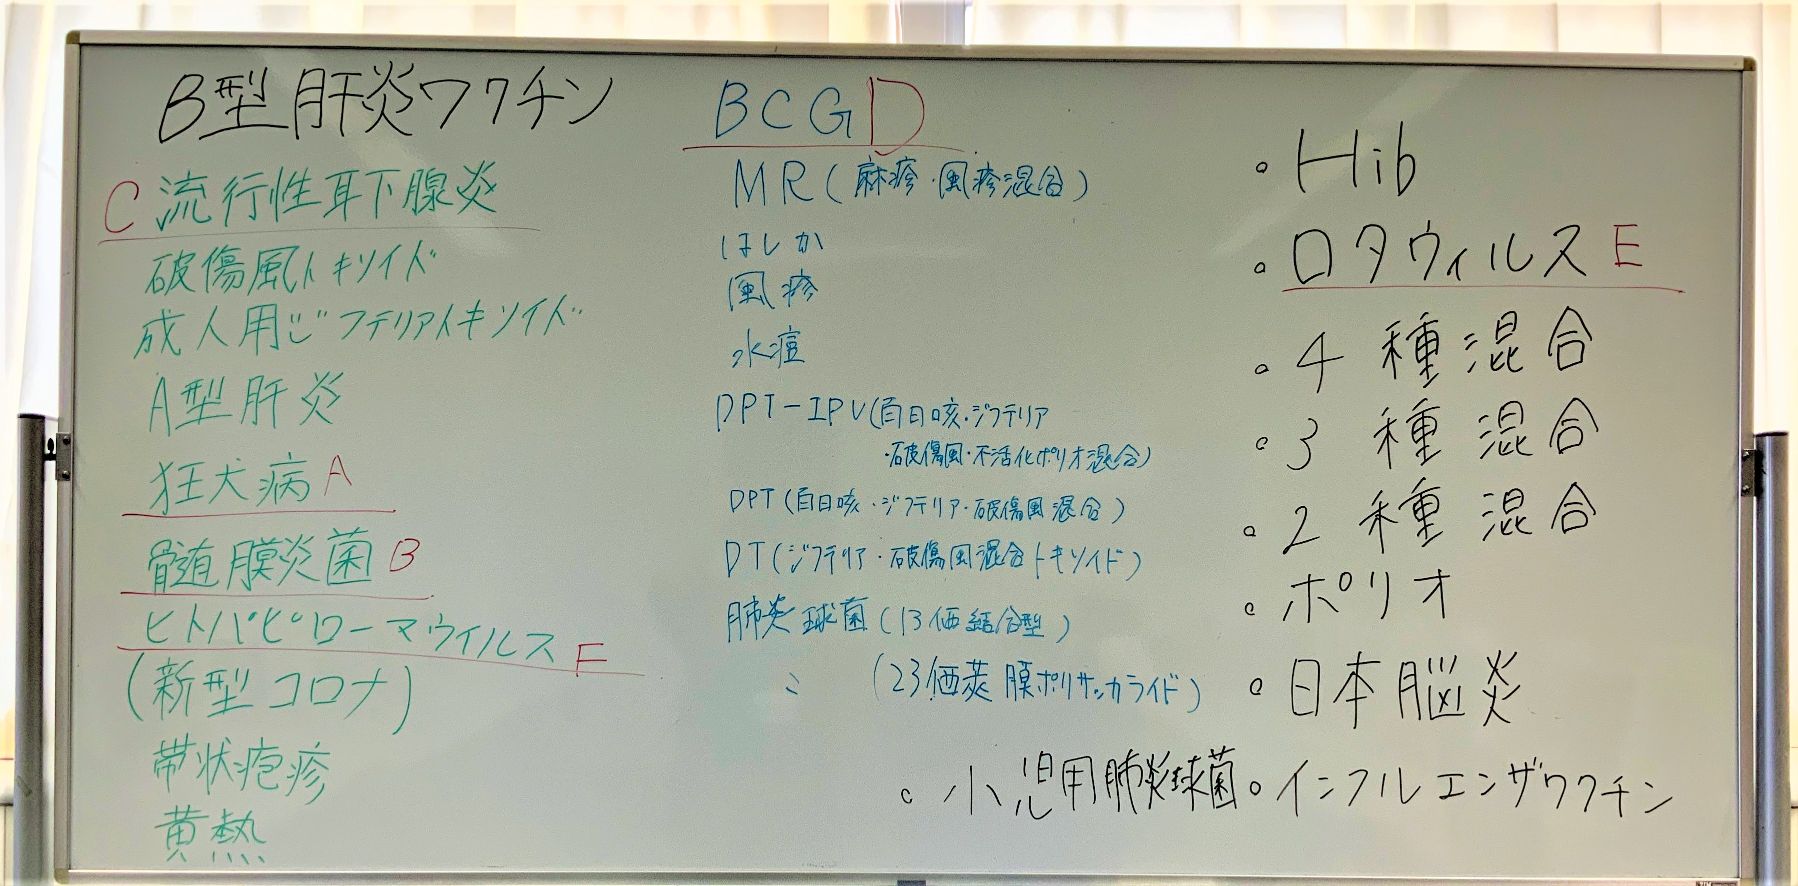 B型肝炎ワクチン
C 流行性耳下腺炎
破傷風トキソイド
成人用ジフテリアトキソイド
A型肝炎
狂犬病 A
髄膜炎菌 B
ヒトパピローマウイルス F
(新型コロナ)
帯状疱疹
黄熱
BCG D
MR(麻疹・風疹混合)
はしか
風疹
水痘
DPT-IPV(百日咳・ジフテリア
・破傷風・不活化ポリオ混合)
DPT(百日咳・ジフテリア・破傷風混合)
DT(ジフテリア・破傷風混合トキソイド)
肺炎球菌(13価結合型)
〃 (23価莢膜ポリサッカライド)
。Hib
。ロタウィルス E
。4種混合
。3種混合
。2種混合
。ポリオ
。日本脳炎
。小児用肺炎球菌。インフルエンザワクチン